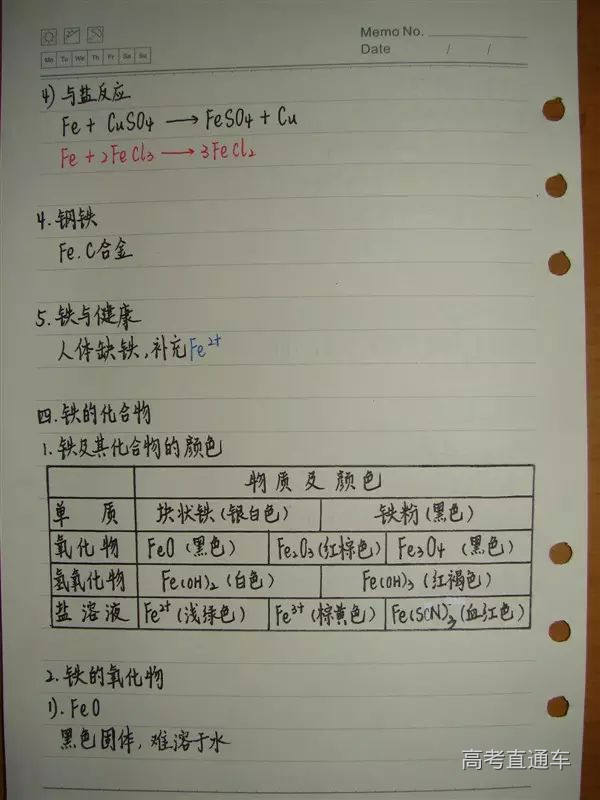 Memo No.
Mo Tu We Th Fr Sa Su
Date / /
4) 与盐反应
Fe + CuSO4 ⟶ FeSO4 + Cu
Fe + 2FeCl3 ⟶ 3FeCl2
4. 钢铁
Fe. C合金
5. 铁与健康
人体缺铁, 补充Fe²⁺
四. 铁的化合物
1. 铁及其化合物的颜色
物质及颜色
单质 块状铁 (银白色) 铁粉 (黑色)
氧化物 FeO (黑色) Fe2O3 (红棕色) Fe3O4 (黑色)
氢氧化物 Fe(OH)2 (白色) Fe(OH)3 (红褐色)
盐溶液 Fe²⁺ (浅绿色) Fe³⁺ (棕黄色) Fe(SCN)3 (血红色)
2. 铁的氧化物
1). FeO
黑色固体, 难溶于水
高考直通车